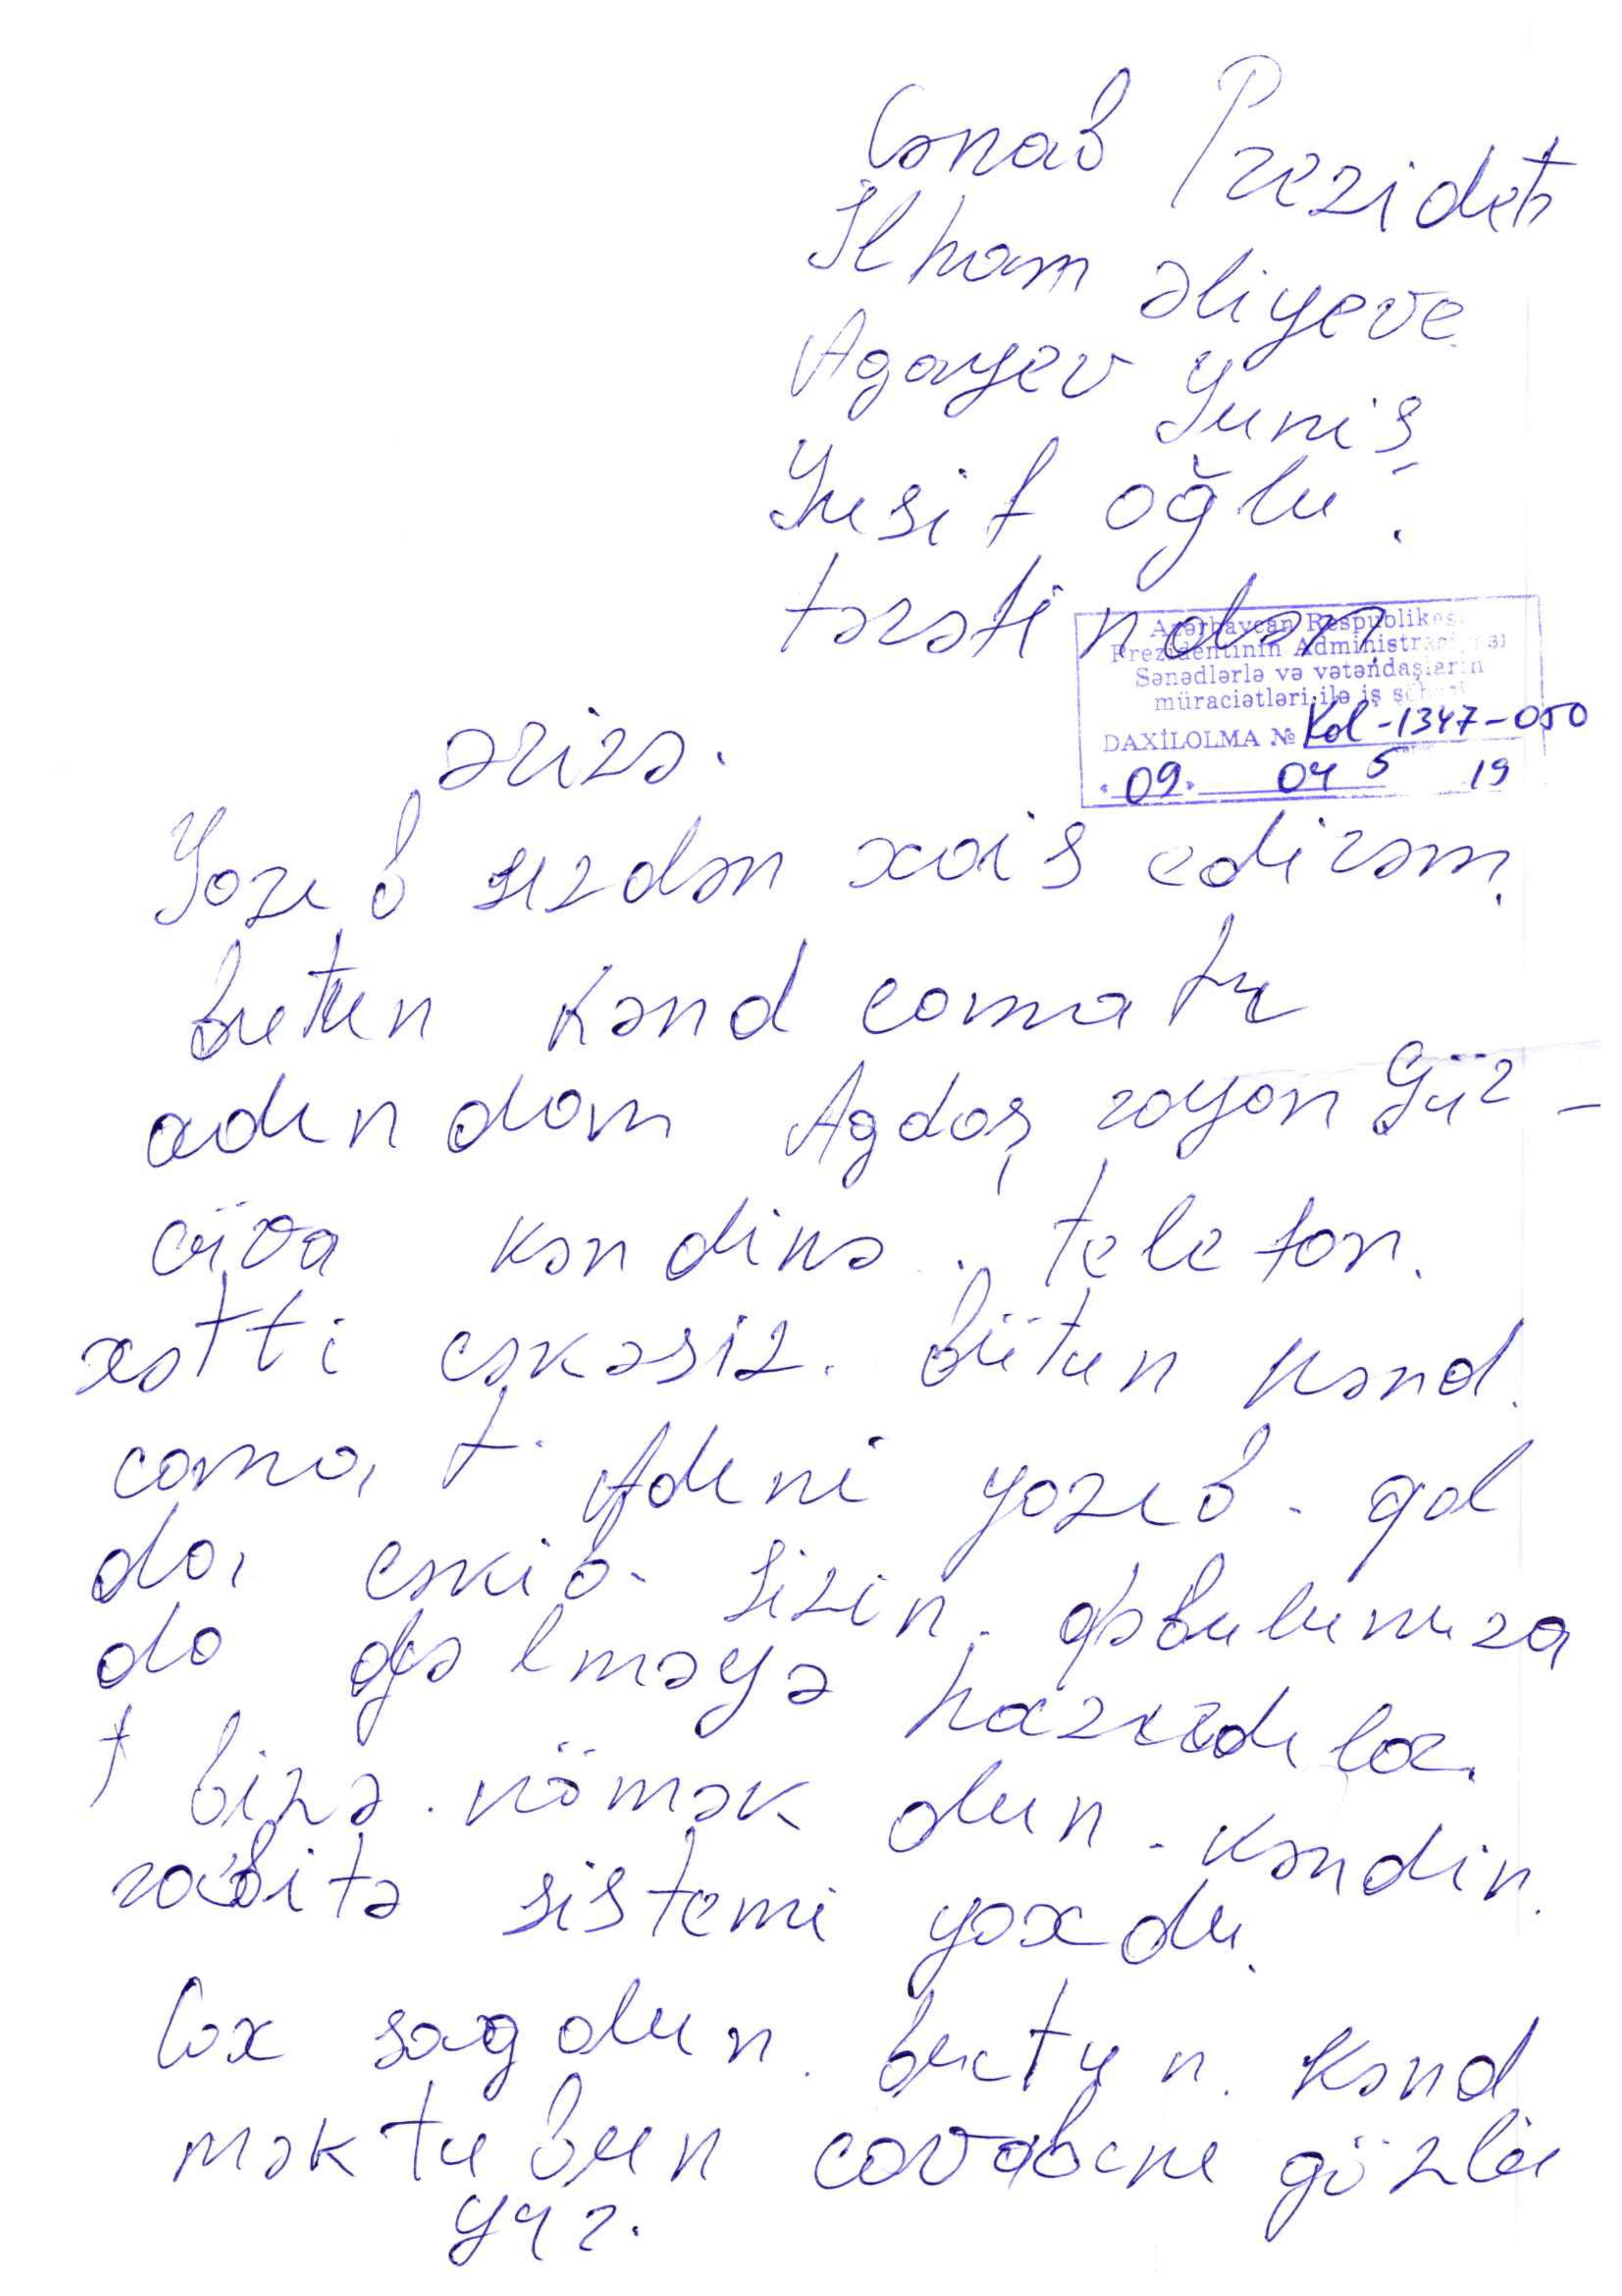 Cənab Prezideti
İlham əliyeve
Agayev Yunis
Yusif oğlu.
tərəfindən
Azərbaycan Respublikası
Prezidentinin Administrasiyası
Sənədlərlə və vətəndaşların
müraciətləri ilə iş şöbəsi
DAXİLOLMA № Kol-1347-050
09. 04 5 19
ərizə.
Yazıb sızdən xais edirəm.
butun kənd comatı
adından Agdaş rayon Gür-
cüva kəndinə. telefon.
xətti cəkəsiz. bütun kənd.
camat. Adıni yazıb. qol
da, cəkib. Sizin. qəbulunuza
da gəlməyə hazırdılar.
bizə. kömək olun. kəndin.
rabitə sistemi yoxdu.
Cox sagolun. butun. Kənd
məktubun cavabını gözlü
yur.